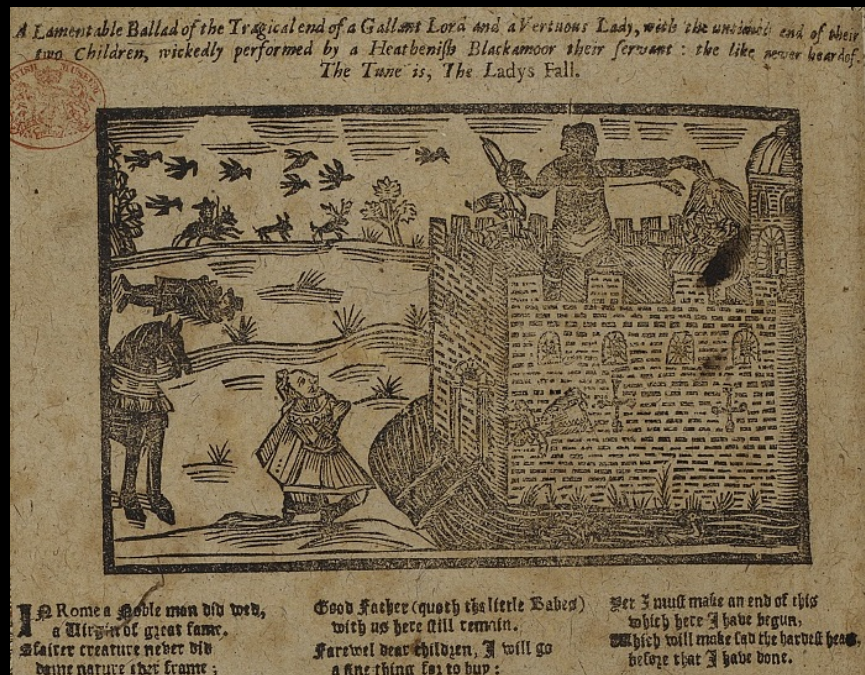 A Lamentable Ballad of the Tragical end of a Gallant Lord and a Vertuous Lady, with the untimely end of their
two Children, wickedly performed by a Heathenish Blackamoor their servant : the like never heard of.
The Tune is, The Ladys Fall.
IN Rome a Noble man did wed,
a Virgin of great fame.
A fairer creature never did
dame nature ever frame ;
Good Father (quoth the little Babes)
with us here still remain.
Farewel dear children, I will go
a fine thing for to buy :
Yet I must make an end of this
which here I have begun,
Which will make sad the hardest heart,
before that I have done.